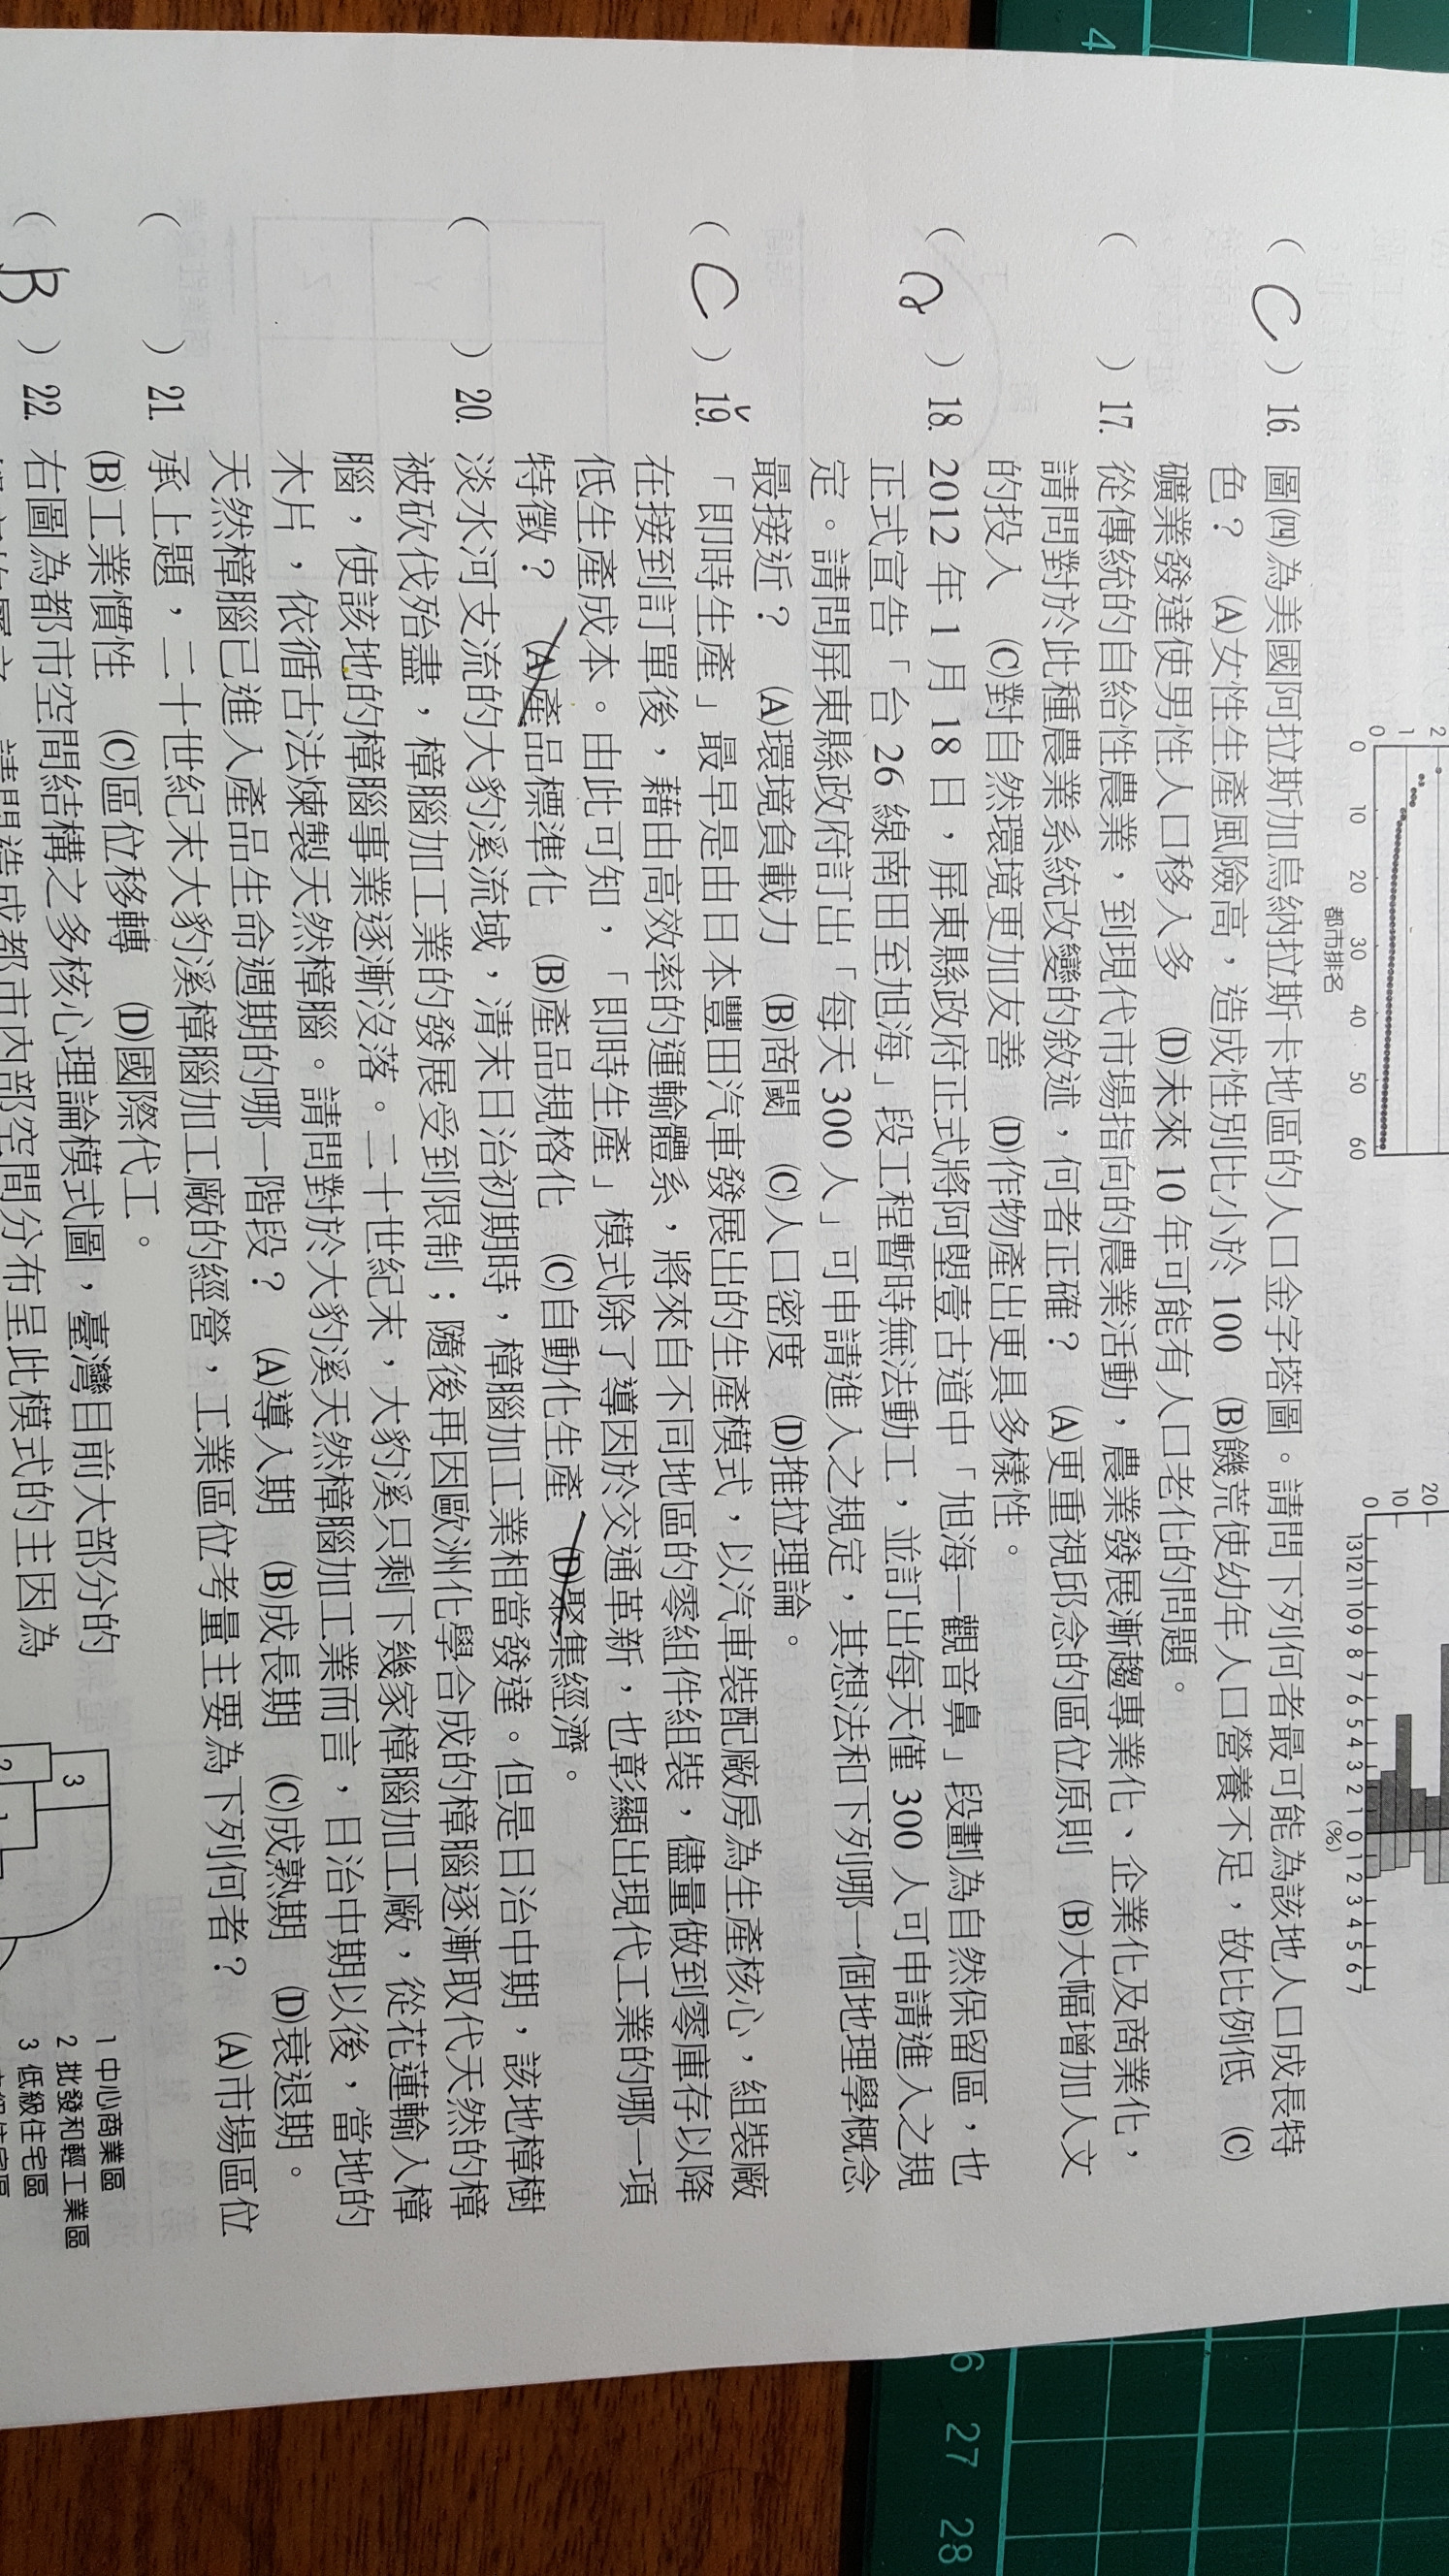 2
1
0
0 10 20 30 40 50 60
都市排名
20
10
0
13 12 11 10 9 8 7 6 5 4 3 2 1 0 1 2 3 4 5 6 7
(%)
( C ) 16. 圖㈣為美國阿拉斯加烏納拉斯卡地區的人口金字塔圖。請問下列何者最可能為該地人口成長特
色? (A)女性生產風險高,造成性別比小於 100 (B)饑荒使幼年人口營養不足,故比例低 (C)
礦業發達使男性人口移入多 (D)未來 10 年可能有人口老化的問題。
( ) 17. 從傳統的自給性農業,到現代市場指向的農業活動,農業發展漸趨專業化、企業化及商業化,
請問對於此種農業系統改變的敘述,何者正確? (A)更重視邱念的區位原則 (B)大幅增加人文
的投入 (C)對自然環境更加友善 (D)作物產出更具多樣性。
( a ) 18. 2012 年 1 月 18 日,屏東縣政府正式將阿塱壹古道中「旭海—觀音鼻」段劃為自然保留區,也
正式宣告「台 26 線南田至旭海」段工程暫時無法動工,並訂出每天僅 300 人可申請進入之規
定。請問屏東縣政府訂出「每天 300 人」可申請進入之規定,其想法和下列哪一個地理學概念
最接近? (A)環境負載力 (B)商閾 (C)人口密度 (D)推拉理論。
( C ) 19. 「即時生產」最早是由日本豐田汽車發展出的生產模式,以汽車裝配廠房為生產核心,組裝廠
在接到訂單後,藉由高效率的運輸體系,將來自不同地區的零組件組裝,儘量做到零庫存以降
低生產成本。由此可知,「即時生產」模式除了導因於交通革新,也彰顯出現代工業的哪一項
特徵? (A)產品標準化 (B)產品規格化 (C)自動化生產 (D)聚集經濟。
( ) 20. 淡水河支流的大豹溪流域,清末日治初期時,樟腦加工業相當發達。但是日治中期,該地樟樹
被砍伐殆盡,樟腦加工業的發展受到限制;隨後再因歐洲化學合成的樟腦逐漸取代天然的樟
腦,使該地的樟腦事業逐漸沒落。二十世紀末,大豹溪只剩下幾家樟腦加工廠,從花蓮輸入樟
木片,依循古法煉製天然樟腦。請問對於大豹溪天然樟腦加工業而言,日治中期以後,當地的
天然樟腦已進入產品生命週期的哪一階段? (A)導入期 (B)成長期 (C)成熟期 (D)衰退期。
( ) 21. 承上題,二十世紀末大豹溪樟腦加工廠的經營,工業區位考量主要為下列何者? (A)市場區位
(B)工業慣性 (C)區位移轉 (D)國際代工。
( B ) 22. 右圖為都市空間結構之多核心理論模式圖,臺灣目前大部分的
請問造成都市內部空間分布呈此模式的主因為
3
2
1
1 中心商業區
2 批發和輕工業區
3 低級住宅區
4
26 27 28